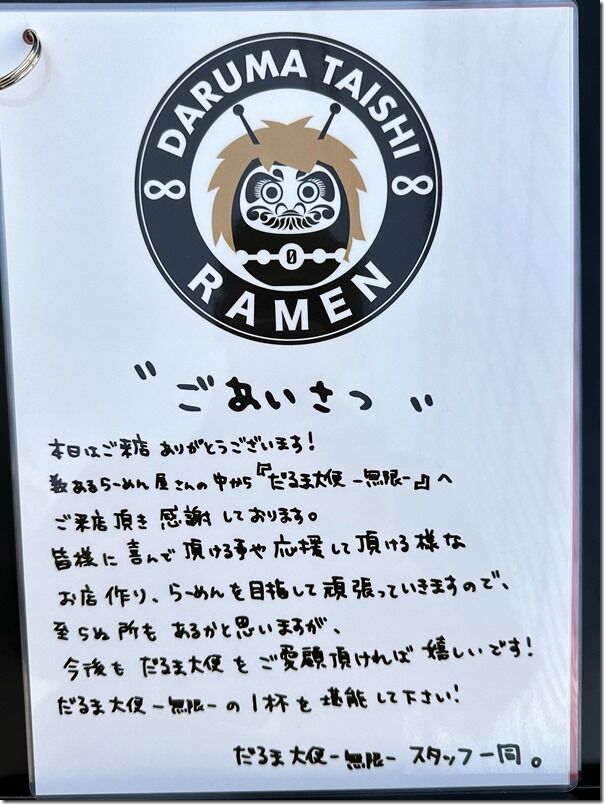 DARUMA TAISHI
8 8
0
RAMEN
"ごあいさつ"
本日はご来店ありがとうございます!
数あるらーめん屋さんの中から『だるま大使-無限-』へ
ご来店頂き感謝しております。
皆様に喜んで頂ける事や応援して頂ける様な
お店作り、らーめんを目指して頑張っていきますので、
至らぬ所もあるかと思いますが、
今後もだるま大使をご愛顧頂ければ嬉しいです!
だるま大使-無限-の1杯を堪能して下さい!
だるま大使-無限-スタッフ一同。